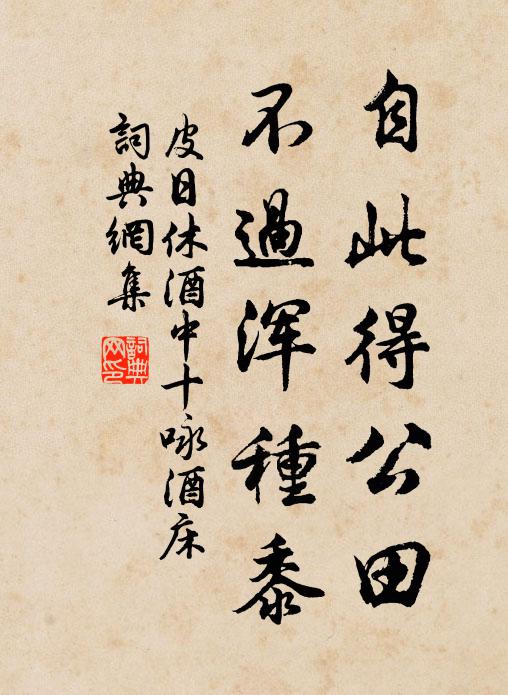 自此得公田
不過浑種黍
皮日休酒中十咏酒床
詞典網集
詞典
网印